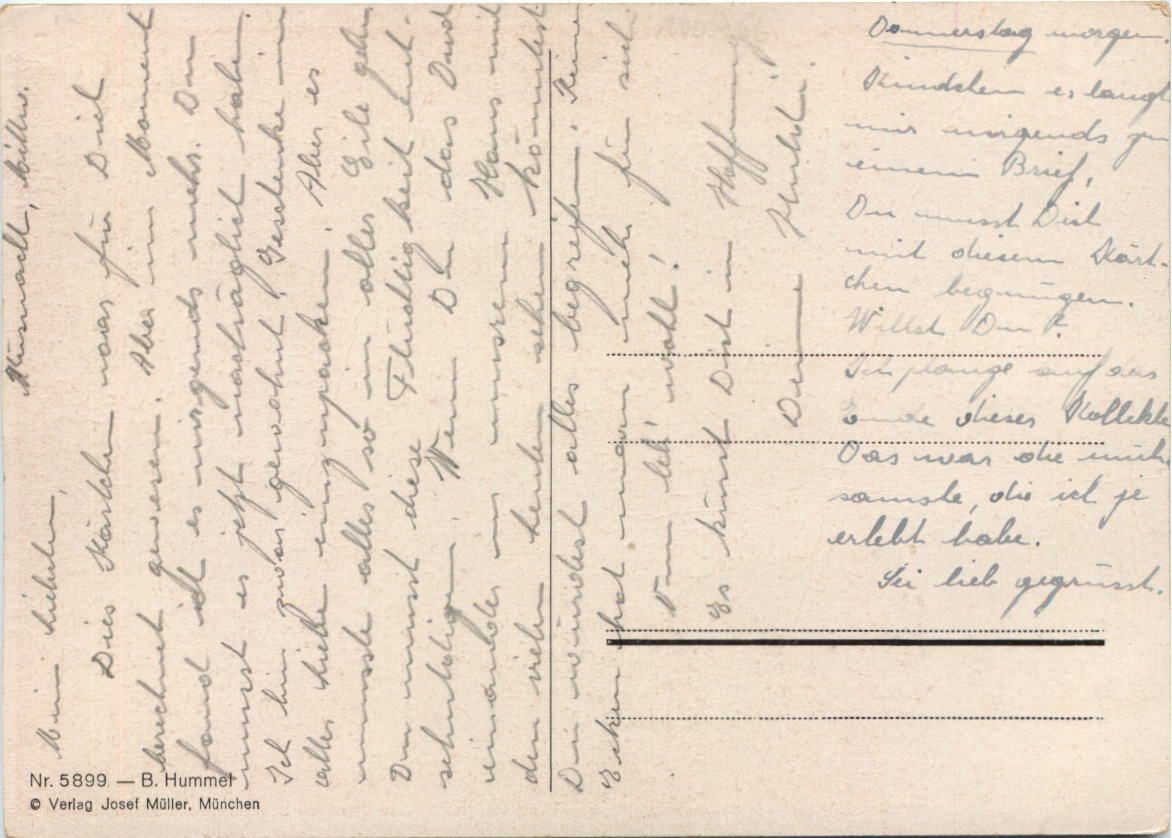 Küsnacht, mittw.
Mein liebchen,
Dies Kärtchen war für Dich
berechnet gewesen. Aber im Moment
fand ich es nirgends mehr. Du
musst es jetzt nachträglich haben.
Ich bin zwar gewohnt, Geschenke in
aller Stille einzupacken. Aber es
musste alles so in aller Eile gehn
Du musst diese Flüchtigkeit ent-
schuldigen. Wenn Du das Durch
einander in unsrem Haus mit
den vielen Leuten sehen könntest
Du würdest alles begreifen. Keine
Ecken hat man mehr für sich
Nun leb' wohl!
Es küsst Dich in Hoffnung
Deine
Donnerstag morgen.
Kindchen es langt
mir nirgends zu
einem Brief,
Du musst Dich
mit diesem Kärt-
chen begnügen.
Willst Du?
Ich plange auf das
Ende dieser Kollekte
Das war die müh
samste, die ich je
erlebt habe.
Sei lieb gegrüsst.
Nr. 5899 — B. Hummel
© Verlag Josef Müller, München